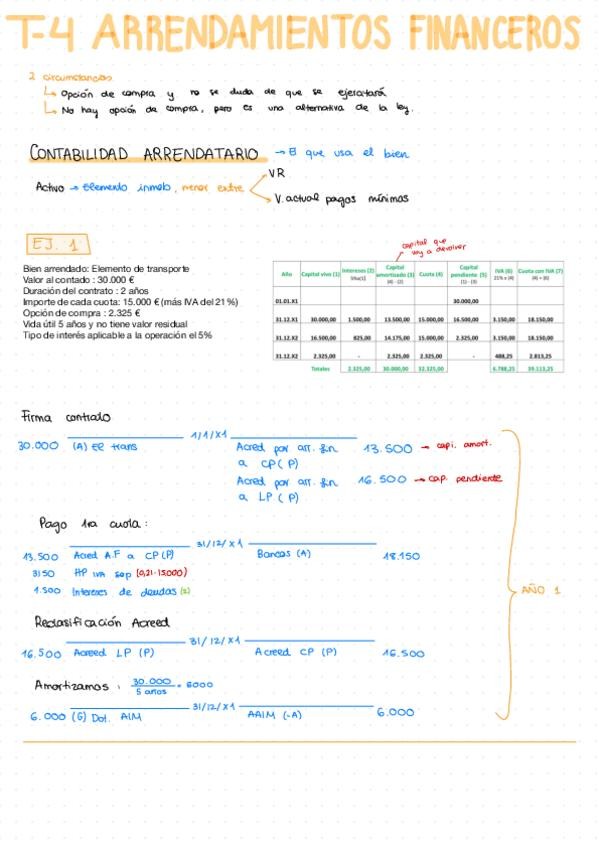 T-4 ARRENDAMIENTOS FINANCEROS
2 circumstancias
↳ Opción de compra y no se duda de que se ejercitará
↳ No hay opción de compra, pero es una alternativa de la ley.
CONTABILIDAD ARRENDATARIO → El que usa el bien
VR
Activo → Elemento inmob, menor entre
V. actual pagos mínimos
EJ. 1
capital que voy a devolver
Bien arrendado: Elemento de transporte
Valor al contado : 30.000 €
Duración del contrato : 2 años
Importe de cada cuota: 15.000 € (más IVA del 21 %)
Opción de compra : 2.325 €
Vida útil 5 años y no tiene valor residual
Tipo de interés aplicable a la operación el 5%
Año Capital vivo (1) Intereses (2) 5%x(1) Capital amortizado (3) (4) - (2) Cuota (4) Capital pendiente (5) (1) - (3) IVA (6) 21% x (4) Cuota con IVA (7) (4) + (6)
01.01.X1 30.000,00
31.12.X1 30.000,00 1.500,00 13.500,00 15.000,00 16.500,00 3.150,00 18.150,00
31.12.X2 16.500,00 825,00 14.175,00 15.000,00 2.325,00 3.150,00 18.150,00
31.12.X2 2.325,00 - 2.325,00 2.325,00 - 488,25 2.813,25
Totales 2.325,00 30.000,00 32.325,00 6.788,25 39.113,25
Firma contrato
1/1/X1
30.000 (A) El trans Acred por arr. fin a CP (P) 13.500 → capi. amort.
Acred por arr. fin a LP (P) 16.500 → cap. pendiente
Pago 1ra cuota :
31/12/X1
13.500 Acred A.F a CP (P) Bancos (A) 18.150
3150 HP IVA sop (0,21·15.000)
1.500 Intereses de deudas (2)
AÑO 1
Reclasificación Acreed
31/12/X1
16.500 Acreed LP (P) Acreed CP (P) 16.500
Amortizamos : 30.000 / 5 años = 6000
31/12/X1
6.000 (G) Dot. AIM AAIM (-A) 6.000